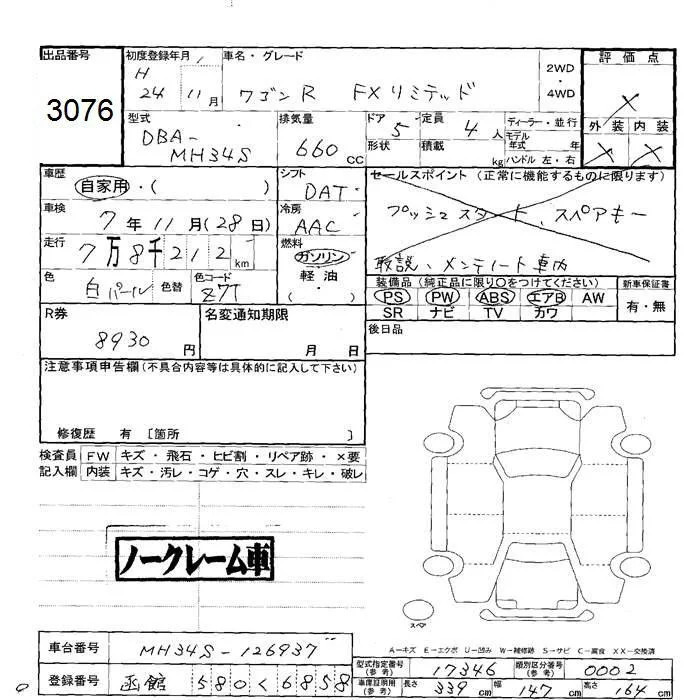 出品番号 初度登録年月 車名・グレード 2WD・4WD 評価点
3076 H 24 11月 ワゴンR FXリミテッド X
型式 排気量 ドア 定員 ディーラー・並行 外装 内装
DBA-MH34S 660cc 5 4人 モデル年式 年 X X
形状 積載 kg ハンドル 左・右
車歴 シフト セールスポイント(正常に機能するものに限ります)
自家用・( ) DAT
車検 7年11月(28日) 冷房 AAC プッシュスタート、スペアキー
走行 7万8千212km 燃料 ガソリン・軽油・( ) 取説、メンテノート車内
色 白パール 色替 色コード Z7T
装備品(純正品に限り○をつけてください) 新車保証書
PS PW ABS エアB AW 有・無
SR ナビ TV カワ
R券 名変通知期限 後日品
8930円 月 日
注意事項申告欄(不具合内容等は具体的に記入して下さい)
修復歴 有 〔箇所 〕
検査員 FW キズ・飛石・ヒビ割・リペア跡・×要
記入欄 内装 キズ・汚レ・コゲ・穴・スレ・キレ・破レ
ノークレーム車
スペア
A-キズ E-エクボ U-凹み W-補修跡 S-サビ C-腐食 XX-交換済
車台番号 MH34S-126937
型式指定番号(参考) 17346 類別区分番号(参考) 0002
登録番号 函館 580く6858
車庫証明用(参考) 長さ 339cm 幅 147cm 高さ 164cm